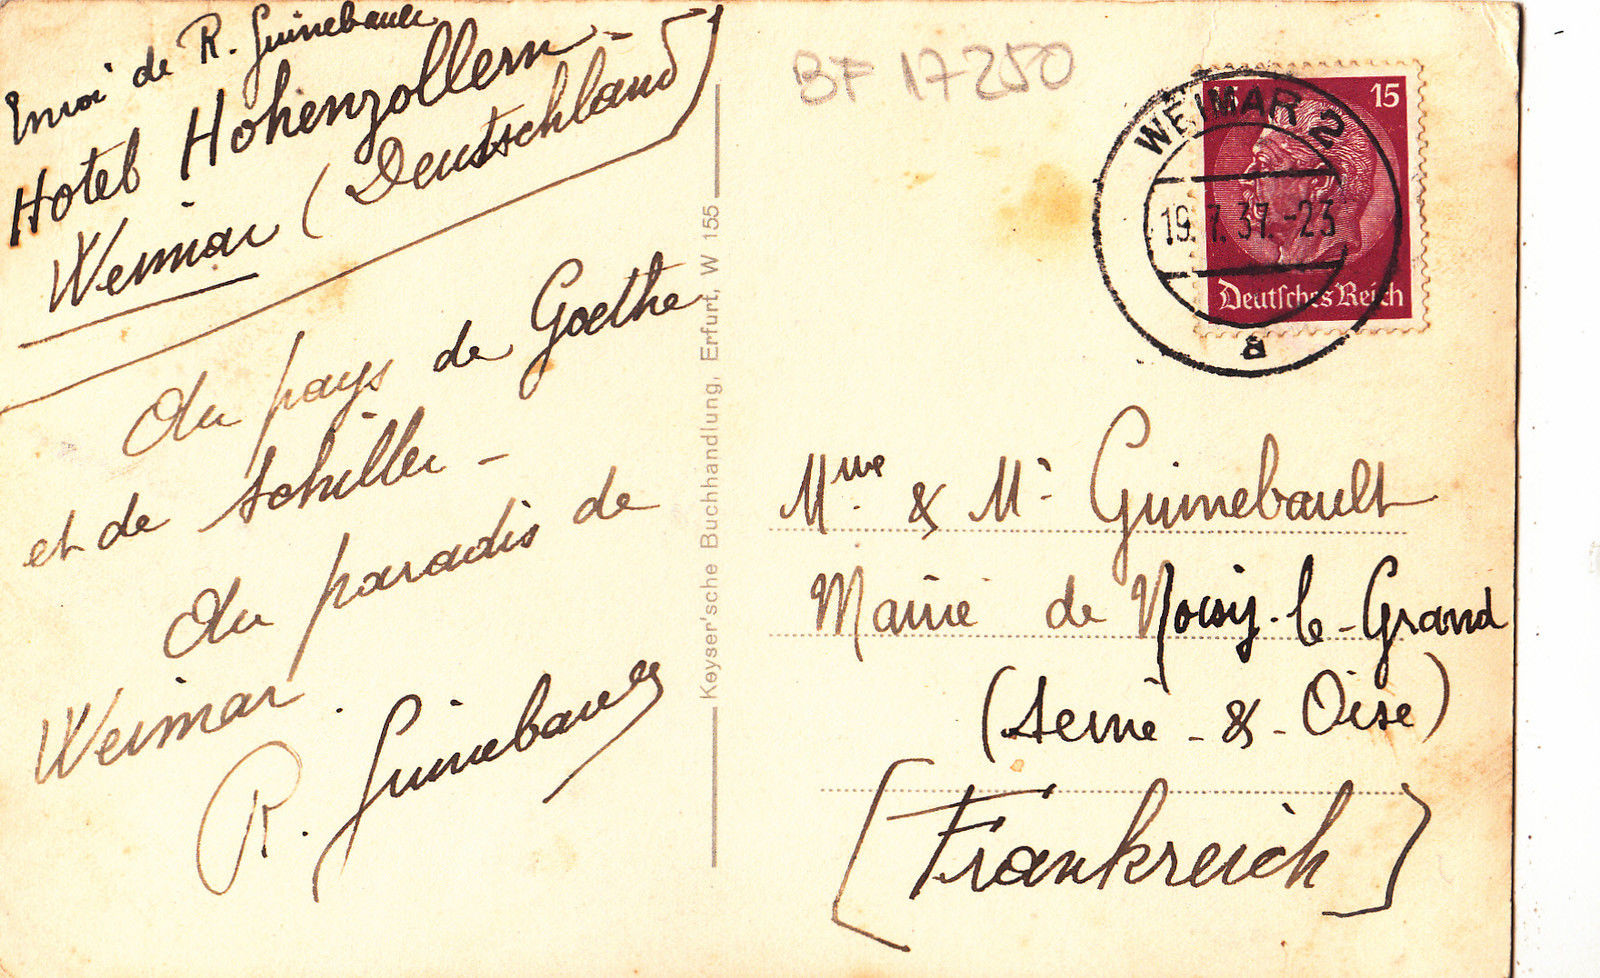 Envoi de R. Guinebault
Hotel Hohenzollern -
Weimar (Deutschland)
Du pays de Goethe
et de Schiller -
Du paradis de
Weimar.
R. Guinebault
Keyser'sche Buchhandlung, Erfurt, W 155
BF 17250
WEIMAR 2
19.7.37.-23
a
15
Deutsches Reich
Mme & Mr Guinebault
Mairie de Noisy-le-Grand
(Seine-&-Oise)
[Frankreich]